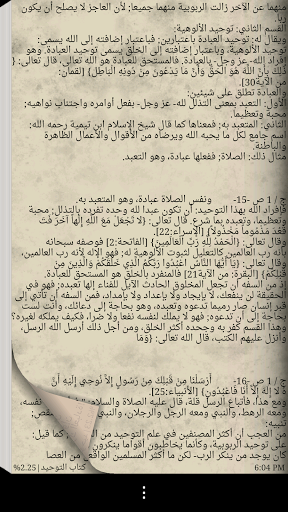 منهما عن الآخر زالت الربوبية منهما جميعا; لأن العاجز لا يصلح أن يكون
ربا.
القسم الثاني: توحيد الألوهية:
ويقال له: توحيد العبادة باعتبارين; فباعتبار إضافته إلى الله يسمى:
توحيد الألوهية، وباعتبار إضافته إلى الخلق يسمى توحيد العبادة. وهو
إفراد الله- عز وجل- بالعبادة. فالمستحق للعبادة هو الله تعالى، قال تعالى: {
ذَلِكَ بِأَنَّ اللَّهَ هُوَ الْحَقُّ وَأَنَّ مَا يَدْعُونَ مِنْ دُونِهِ الْبَاطِلُ} [لقمان:
من الآية30].
والعبادة تطلق على شيئين:
الأول: التعبد بمعنى التذلل لله- عز وجل- بفعل أوامره واجتناب نواهيه;
محبة وتعظيما.
الثاني: المتعبد به; فمعناها كما قال شيخ الإسلام ابن تيمية رحمه الله:
"اسم جامع لكل ما يحبه الله ويرضاه من الأقوال والأعمال الظاهرة
والباطنة.
مثال ذلك: الصلاة; ففعلها عبادة، وهو التعبد.
ج / 1 ص -15- ونفس الصلاة عبادة، وهو المتعبد به.
فإفراد الله بهذا التوحيد: أن تكون عبدا لله وحده تفرده بالتذلل; محبة
وتعظيما، وتعبده بما شرع، قال تعالى: {لا تَجْعَلْ مَعَ اللَّهِ إِلَهاً آخَرَ فَتَقْعُدَ
مَذْمُوماً مَخْذُولاً} [الإسراء:22].
وقال تعالى: {الْحَمْدُ لِلَّهِ رَبِّ الْعَالَمِينَ} [الفاتحة:2] فوصفه سبحانه
بأنه رب العالمين كالتعليل لثبوت الألوهية له; فهو الإله لأنه رب العالمين،
وقال تعالى: {يَا أَيُّهَا النَّاسُ اعْبُدُوا رَبَّكُمُ الَّذِي خَلَقَكُمْ وَالَّذِينَ مِنْ
قَبْلِكُمْ} [البقرة: من الآية21] فالمنفرد بالخلق هو المستحق للعبادة.
إذ من السفه أن تجعل المخلوق الحادث الآيل للفناء إلها تعبده; فهو في
الحقيقة لن ينفعك، لا بإيجاد ولا بإعداد ولا بإمداد، فمن السفه أن تأتي إلى
قبر إنسان صار رميما تدعوه وتعبده، وهو بحاجة إلى دعائك، وأنت لست
بحاجة إلى أن تدعوه; فهو لا يملك لنفسه نفعا ولا ضرا، فكيف يملكه لغيره؟
وهذا القسم كفر به وجحده أكثر الخلق، ومن أجل ذلك أرسل الله الرسل،
وأنزل عليهم الكتب، قال الله تعالى: {وَمَا
ج / 1 ص -16- أَرْسَلْنَا مِنْ قَبْلِكَ مِنْ رَسُولٍ إِلَّا نُوحِي إِلَيْهِ أَنَّهُ
لا إِلَهَ إِلَّا أَنَا فَاعْبُدُونِ} [الأنبياء:25].
ومع هذا، فأتباع الرسل قلة، قال عليه الصلاة والسلام
ومعه الرهط، والنبي ومعه الرجل والرجلان، والنبي
تنبيه:
من العجب أن أكثر المصنفين في علم التوحيد من
على توحيد الربوبية، وكأنما يخاطبون أقواما ينكرون
كان يوجد من ينكر الرب- لكن ما أكثر المسلمين الواقعين
كتاب التوحيد | 2.25%
6:04 PM